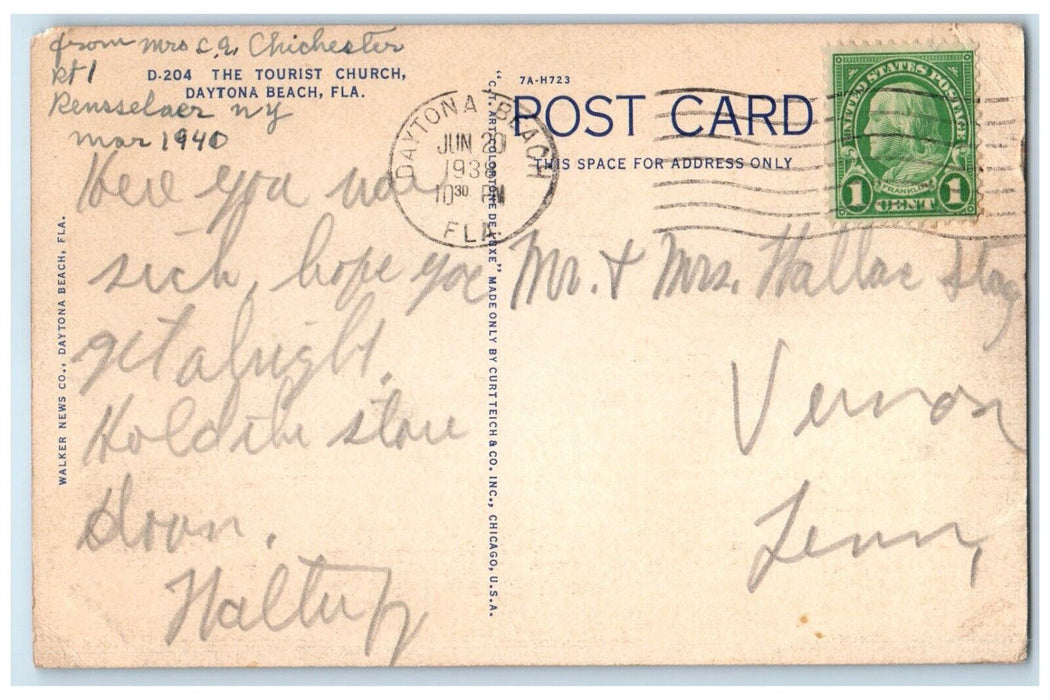 from Mrs C. A. Chichester
Rt 1
D-204 THE TOURIST CHURCH,
DAYTONA BEACH, FLA.
Rensselaer NY
Mar 1940
Here you
sick, hope you
get alright.
Hold the store
Down.
WALKER NEWS CO., DAYTONA BEACH, FLA.
"C.T. ART-COLORTONE DE LUXE" MADE ONLY BY CURT TEICH & CO. INC., CHICAGO, U.S.A.
7A-H723
POST CARD
THIS SPACE FOR ADDRESS ONLY
DAYTONA BEACH
JUN 20
1938
10 30 PM
FLA.
UNITED STATES POSTAGE
FRANKLIN
1 CENT 1
Mr. & Mrs. Wallac
Vernon
Tenn,